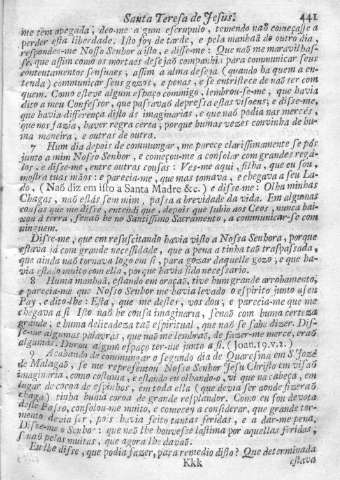 Santa Teresa de Jesus. 441
me tem apegada, deo-me a gum escrupulo, temendo naõ começasse a
perder esta liberdade. Isto foy de tarde, e pela manhãã do outro dia,
respondeo-me Nosso Senhor a isto, e disse-me: Que naõ me maravilhas-
se, que assim como os mortaes desejaõ companhia para communicar seus
contentamentos sensuaes, assim a alma deseja (quando ha quem a en-
tenda) communicar seus gozos, e penas, e se entristece de naõ ter com
quem. Como esteve algum espaço commigo, lembrou-se-me, que havia
dito a meu Confessor, que passavaõ depressa estas visoens; e disse-me,
que havia differença disto ás imaginarias, e que naõ podia nas mercés,
que nos fazia, haver regra certa, porque humas vezes convinha de hu-
ma maneira, e outras de outra.
7 Hum dia depois de commungar, me parece clarissimamente se pôs
junto a mim Nosso Senhor, e começou-me a consolar com grandes rega-
los, e disse-me, entre outras cousas: Ves-me aqui, filha, que eu sou,
mostra tuas mãos: e parecia-me, que mas tomava, e chegava a seu La-
do, (Naõ diz em isto a Santa Madre &c.) e disse-me: Olha minhas
Chagas, naõ estás sem mim, passa a brevidade da vida. Em algumas
cousas que me disse, entendi que, depois que subio aos Ceos, nunca bai-
xou á terra, senaõ he no Santissimo Sacramento, a communicar-se com
ninguem.
Disse-me, que em resuscitando havia visto a Nossa Senhora, porque
estava já com grande necessidade, que a pena a tinha taõ traspassada,
que ainda naõ tornava logo em si, para gozar daquelle gozo, e que ha-
via estado muito com ella, porque havia sido necessario.
8 Huma manhãã, estando em oraçaõ, tive hum grande arrobamento,
e parecia-me que Nosso Senhor me havia levado o espirito junto a seu
Pay, e dito-lhe: Esta, que me déstes, vos dou; e parecia-me que me
chegava a si. Isto naõ he cousa imaginaria, senaõ com huma certeza
grande, e huma delicadeza taõ espiritual, que naõ se sabe dizer. Dis-
se-me algumas palavras, que naõ me lembraõ, de fazer-me mercé, eraõ
algumas. Durou algum espaço ter-me junto a si. (Joan.19.v.1.)
9 Acabando de commungar o segundo dia de Quaresma em S. Jozé
de Malagaõ, se me representou Nosso Senhor Jesu Christo em visaõ
imaginaria, como costuma, e estando eu olhando-o, vi que na cabeça, em
lugar de coroa de espinhos, em toda ella (que devia ser aonde fizeraõ
chaga) tinha huma coroa de grande resplandor. Como eu sou devota
deste Passo, consolou-me muito, e comecey a considerar, que grande tor-
mento devia ser, pois havia feito tantas feridas, e a dar-me pena.
Disse-me o Senhor: que naõ lhe houvesse lastima por aquellas feridas,
senaõ pelas muitas, que agora lhe davaõ.
Eu lhe disse, que podia fazer, para remedio disto? Que determinada
Kkk estava